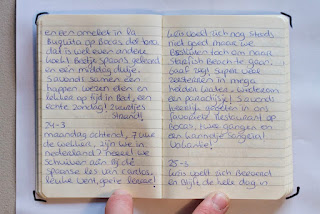 en een omelet in La
Buguita op Bocas, dos tona
dat is wel even andere
koek! Beetje Spaans geleerd
en een middag dutje.
S'avonds samen een
hapje wezen eten en
lekker op tijd in Bed, een
echte zondag!
24-3
maandag ochtend, 7 uur
de wekker, zijn we in
nederland? neeee! we
schuiven aan bij de
Spaanse les van Carlos,
leuke vent, goeie leraar!
Lein voelt zich nog steeds
niet goed maar we
besluiten toch om naar
Starfish Beach te gaan.
Gaaf zeg, super veel
zeesterren in mega
helder water. wederom
een paradijsje! S'avonds
heerlijk gegeten in ons
favoriete Restaurant op
Bocas, twee gangen en
een kannetje Sangria!
Vakantie!
25-3
Lein voelt zich beroerd
en blijft de hele dag in